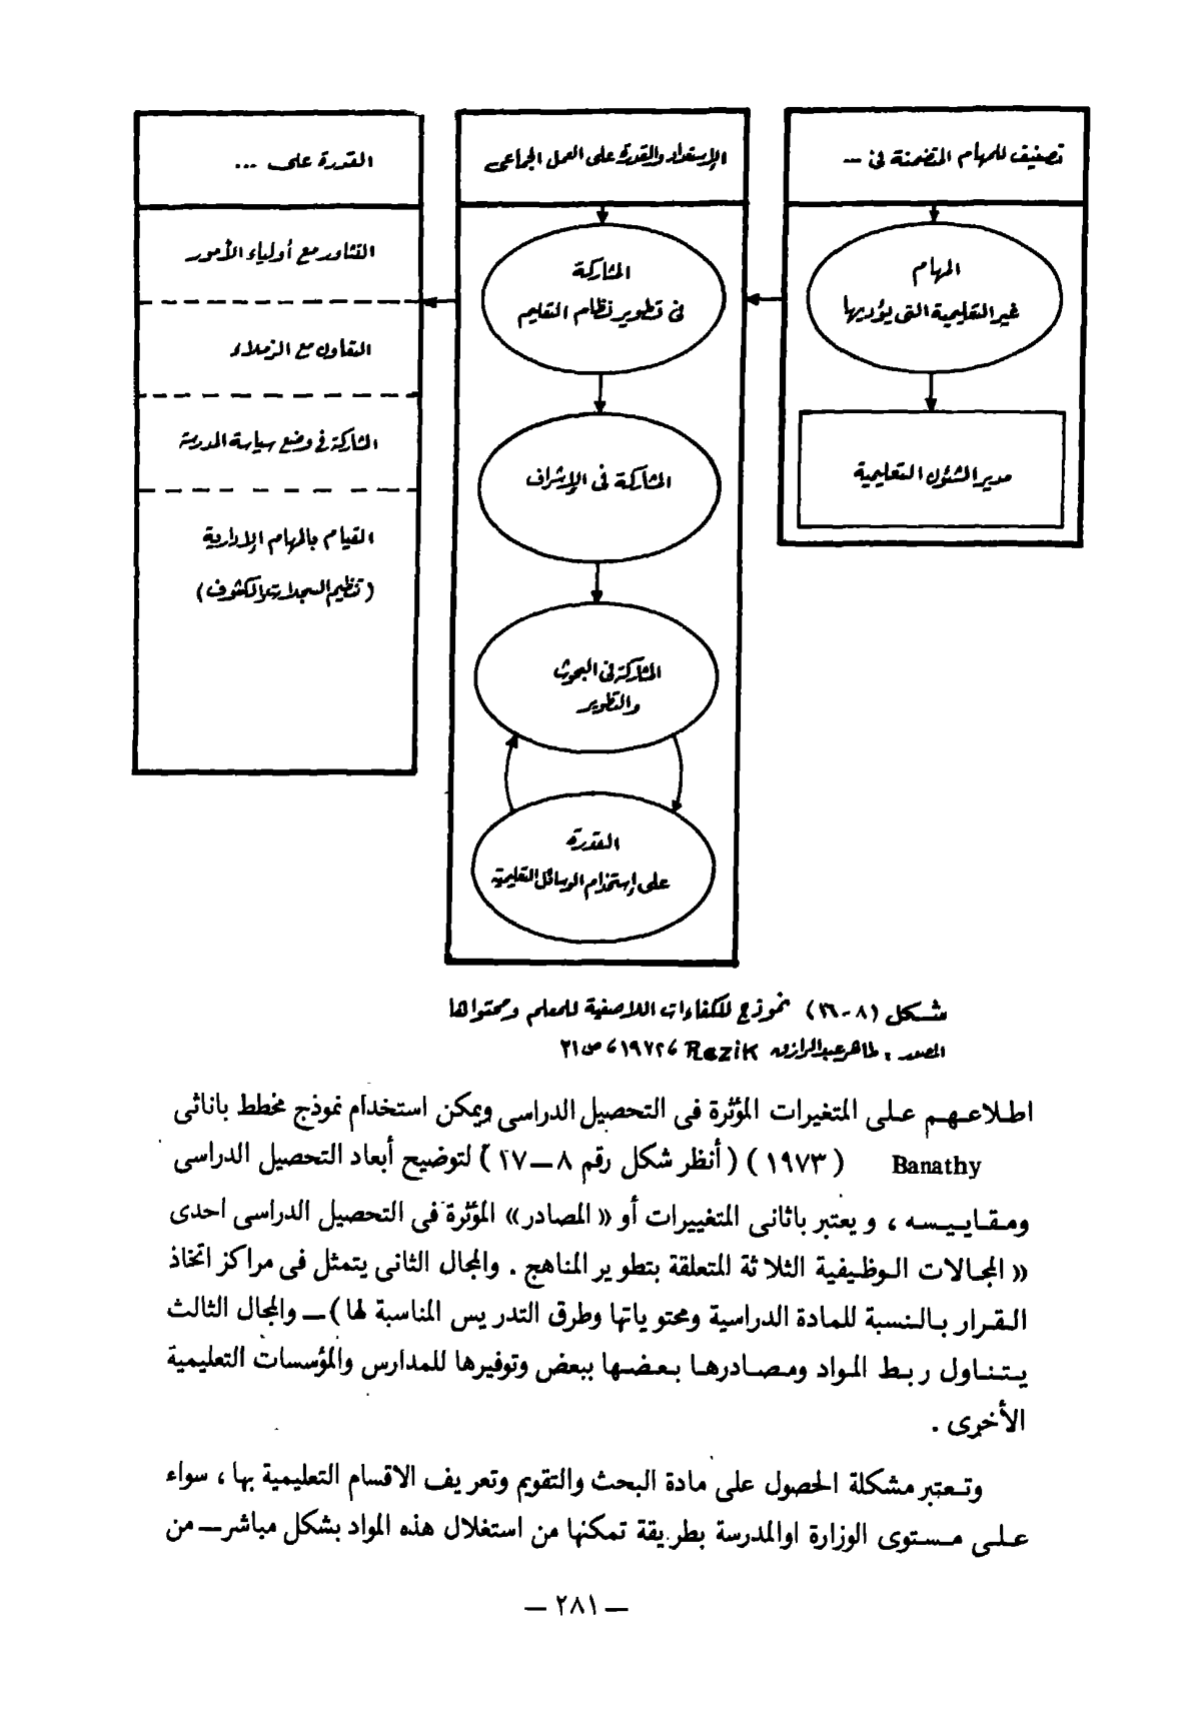 تصنيف للمهام المتضمنة في ...
المهام
غير التعليمية التي يؤديها
مدير الشئون التعليمية
الإستعداد والقدرة على العمل الجماعى
المشاركة
فى تطوير نظام التعليم
المشاركة فى الإشراف
المشاركة فى البحوث
والتطوير
القدرة
على إستخدام الوسائل التعليمية
القدرة على ...
التشاور مع أولياء الأمور
التعاون مع الزملاء
المشاركة فى وضع سياسة المدرسة
القيام بالمهام الإدارية
(تنظيم السجلات والكشوف)
شكل (٨-٢٦) نموذج للكفاءات اللاصفية للمعلم ومحتواها
المصدر : طاهر عبد الرازق Rezik ١٩٧٢، ص ٢١
اطلاعهم على المتغيرات المؤثرة فى التحصيل الدراسى ويمكن استخدام نموذج مخطط باناثى
Banathy (١٩٧٣) (أنظر شكل رقم ٨ــ٢٧) لتوضيح أبعاد التحصيل الدراسى
ومقاييسه ، ويعتبر باثانى المتغييرات أو « المصادر» المؤثرة فى التحصيل الدراسى احدى
« المجالات الوظيفية الثلاثة المتعلقة بتطوير المناهج . والمجال الثانى يتمثل فى مراكز اتخاذ
القرار بالنسبة للمادة الدراسية ومحتوياتها وطرق التدريس المناسبة لها) ــ والمجال الثالث
يتناول ربط المواد ومصادرها بعضها ببعض وتوفيرها للمدارس والمؤسسات التعليمية
الأخرى .
وتعتبر مشكلة الحصول على مادة البحث والتقويم وتعريف الاقسام التعليمية بها ، سواء
على مستوى الوزارة اوالمدرسة بطريقة تمكنها من استغلال هذه المواد بشكل مباشر ــ من
ــ ٢٨١ ــ